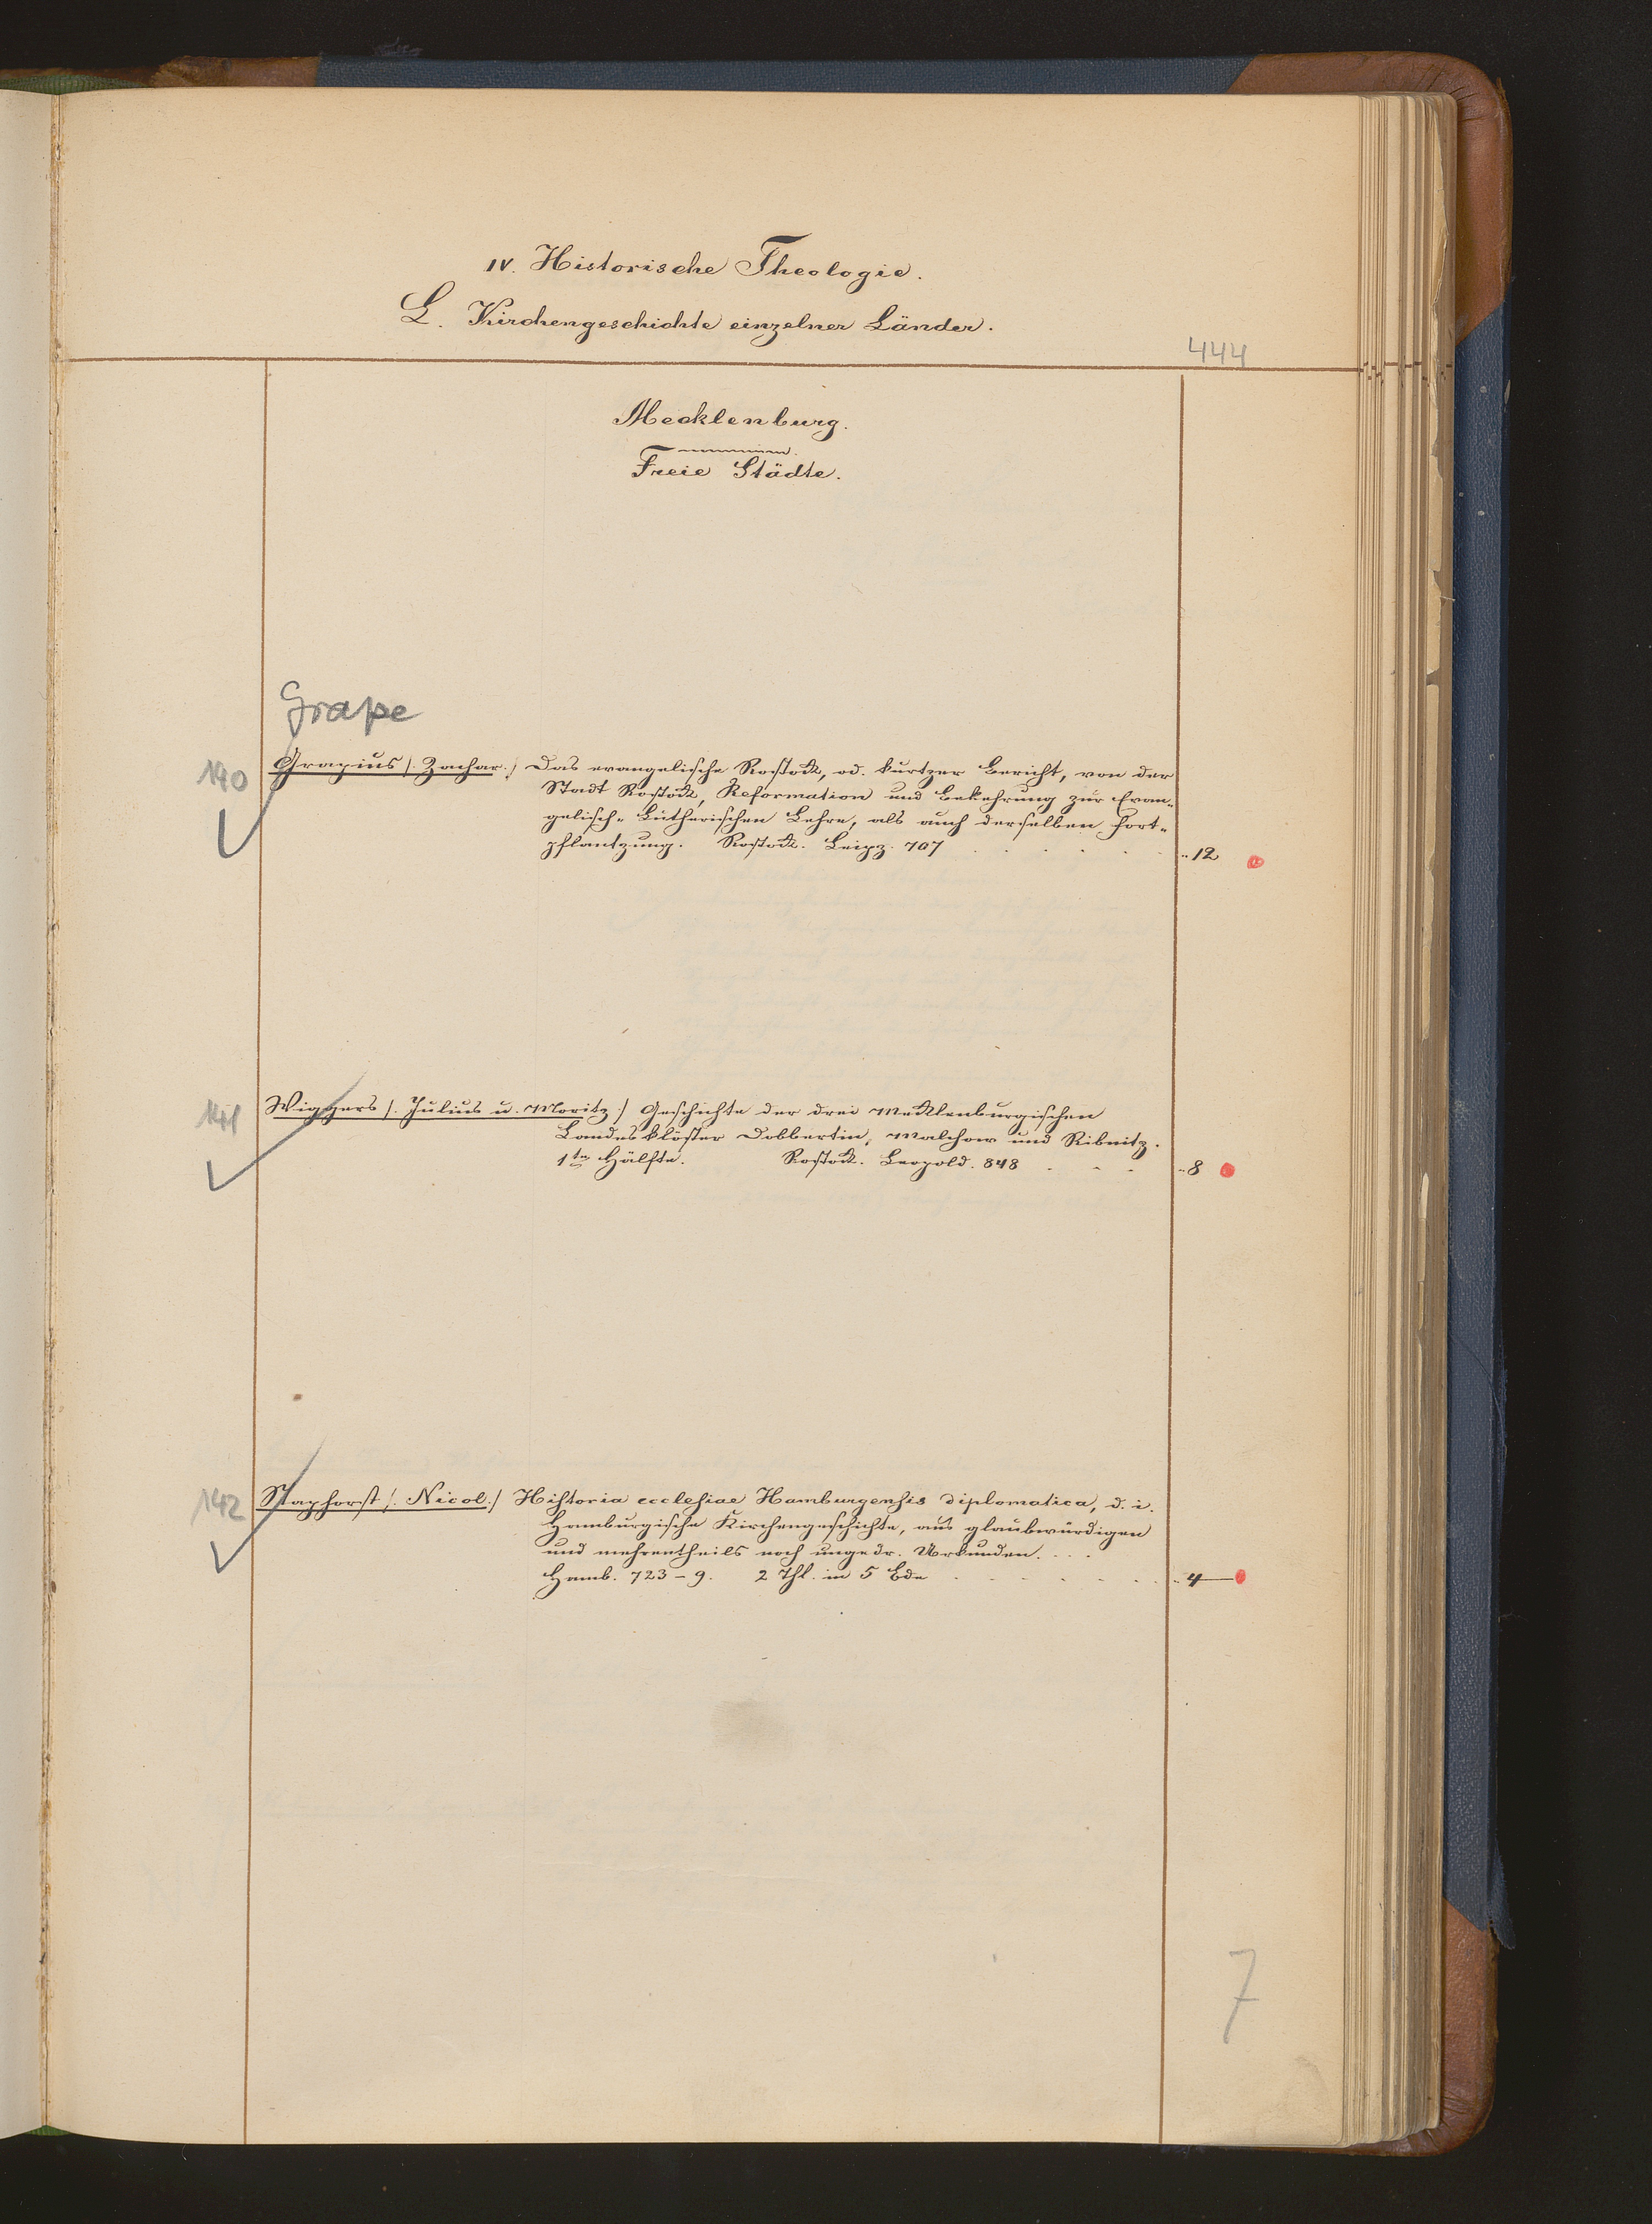 IV. Historische Theologie.
L. Kirchengeschichte einzelner Länder.
444
Mecklenburg.
Freie Städte.
Grape
140
Grapius /. Zachar. / Das evangelische Rostock, od. kurtzer Bericht, von der
Stadt Rostock, Reformation und Bekehrung zur Evan-
gelisch-Lutherischen Lehre, als auch derselben Fort-
pflantzung. Rostock. Leipz. 707 . . . . . . ..12
141
Wiggers /. Julius u. Moritz. / Geschichte der drei Mecklenburgischen
Landesklöster Dobbertin, Malchow und Ribnitz.
1te Hälfte. Rostock. Leopold. 848 . . . ..8
142
Staphorst /. Nicol. / Historia ecclesiae Hamburgensis diplomatica, d. i.
Hamburgische Kirchengeschichte, aus glaubwürdigen
und mehrentheils noch ungedr. Urkunden. . . .
Hamb. 723-9. 2 Thl. in 5 Bde . . . . . . . ..4
7